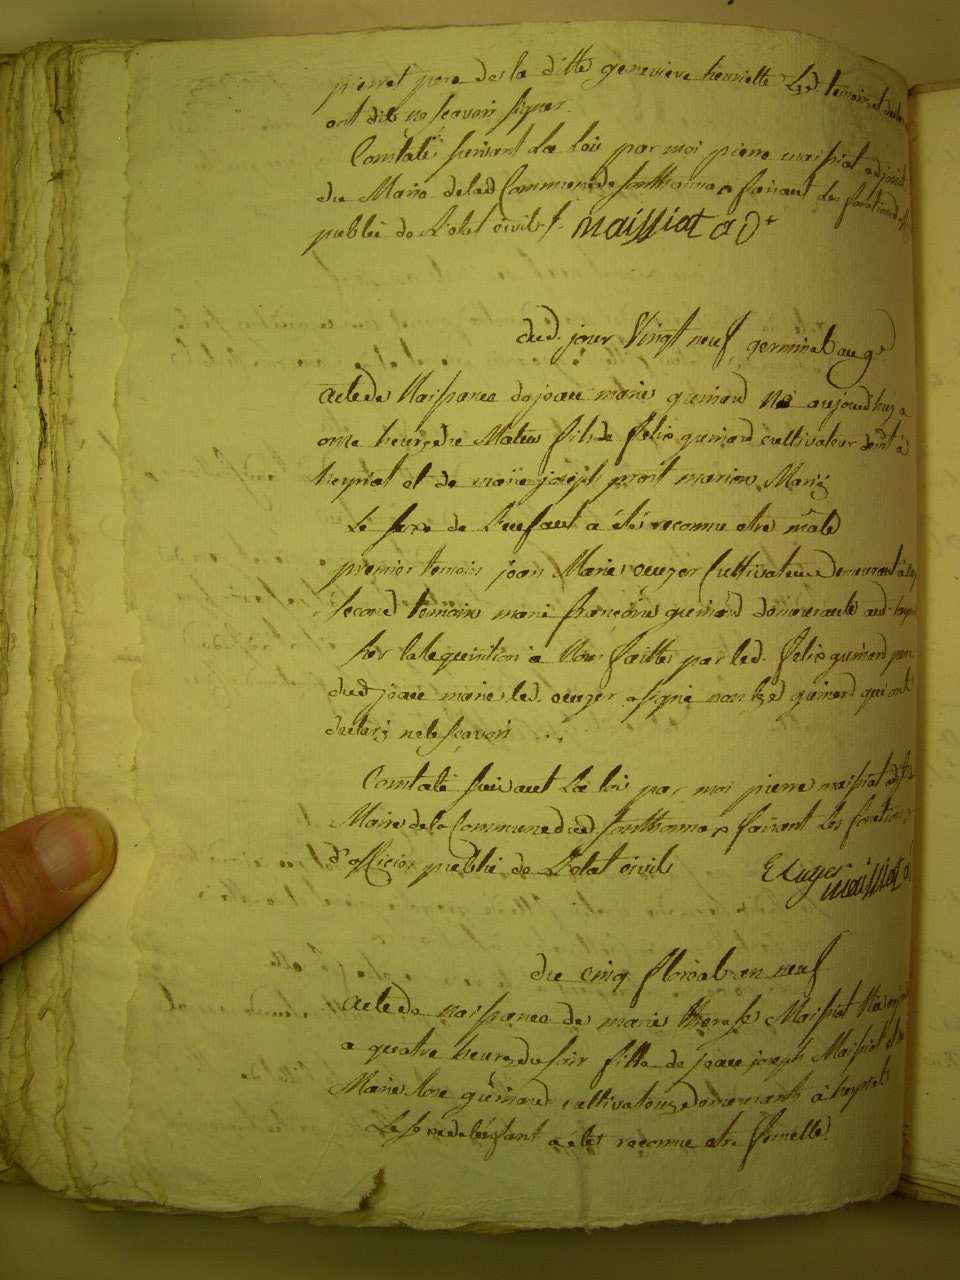 pierret pere de la ditte genevieve henriette Les temoins et declar
ont dit ne scavoir signer.
Contaté suivant La Loi par moi pierre maissiat adjoint
du Maire de lad Commune de faisant les fonctions d'of
public de L'etat civil /. Maissiat adt
dud. jour Vingt neuf germinal an 9e
acte de Naissance de jean marie guinard né aujourdhuy a
onze heures du Matin fils de felix guinard cultivateur demt à
heyriat et de marie joseph prost marion Mariés
Le sexe de L'enfant a été reconnu etre mâle
premier temoin jean Marie Cultivateur Demeurant à
second temoin marie françoise guinard demeurante aud.
sur la requisition a Nous faitte par led. felix guinard pere
dud jean marie led. a signé non lad guinard qui ont
declaré ne le scavoir
Contaté suivant La loi par moi pierre maissiat adjt
Maire de la Commune dud faisant Les fonctions
d'officier public de L'etat civil Maissiat a
du cinq floreal an neuf
acte de naissance de marie therese Maissiat Née
a quatre heures du soir fille de jean joseph Maissiat et de
Marie Rose guinard cultivateurs Demeurants à heyriat
Le sexe de l'enfant a été reconnu etre femelle.